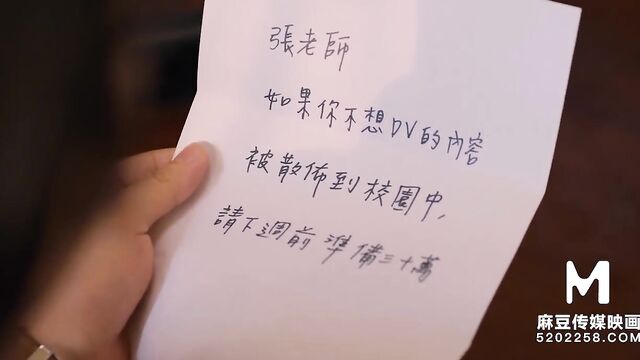 張老師
如果你不想DV的內容
被散佈到校園中,
請下週前準備三十萬
M
麻豆传媒映画
5202258.com